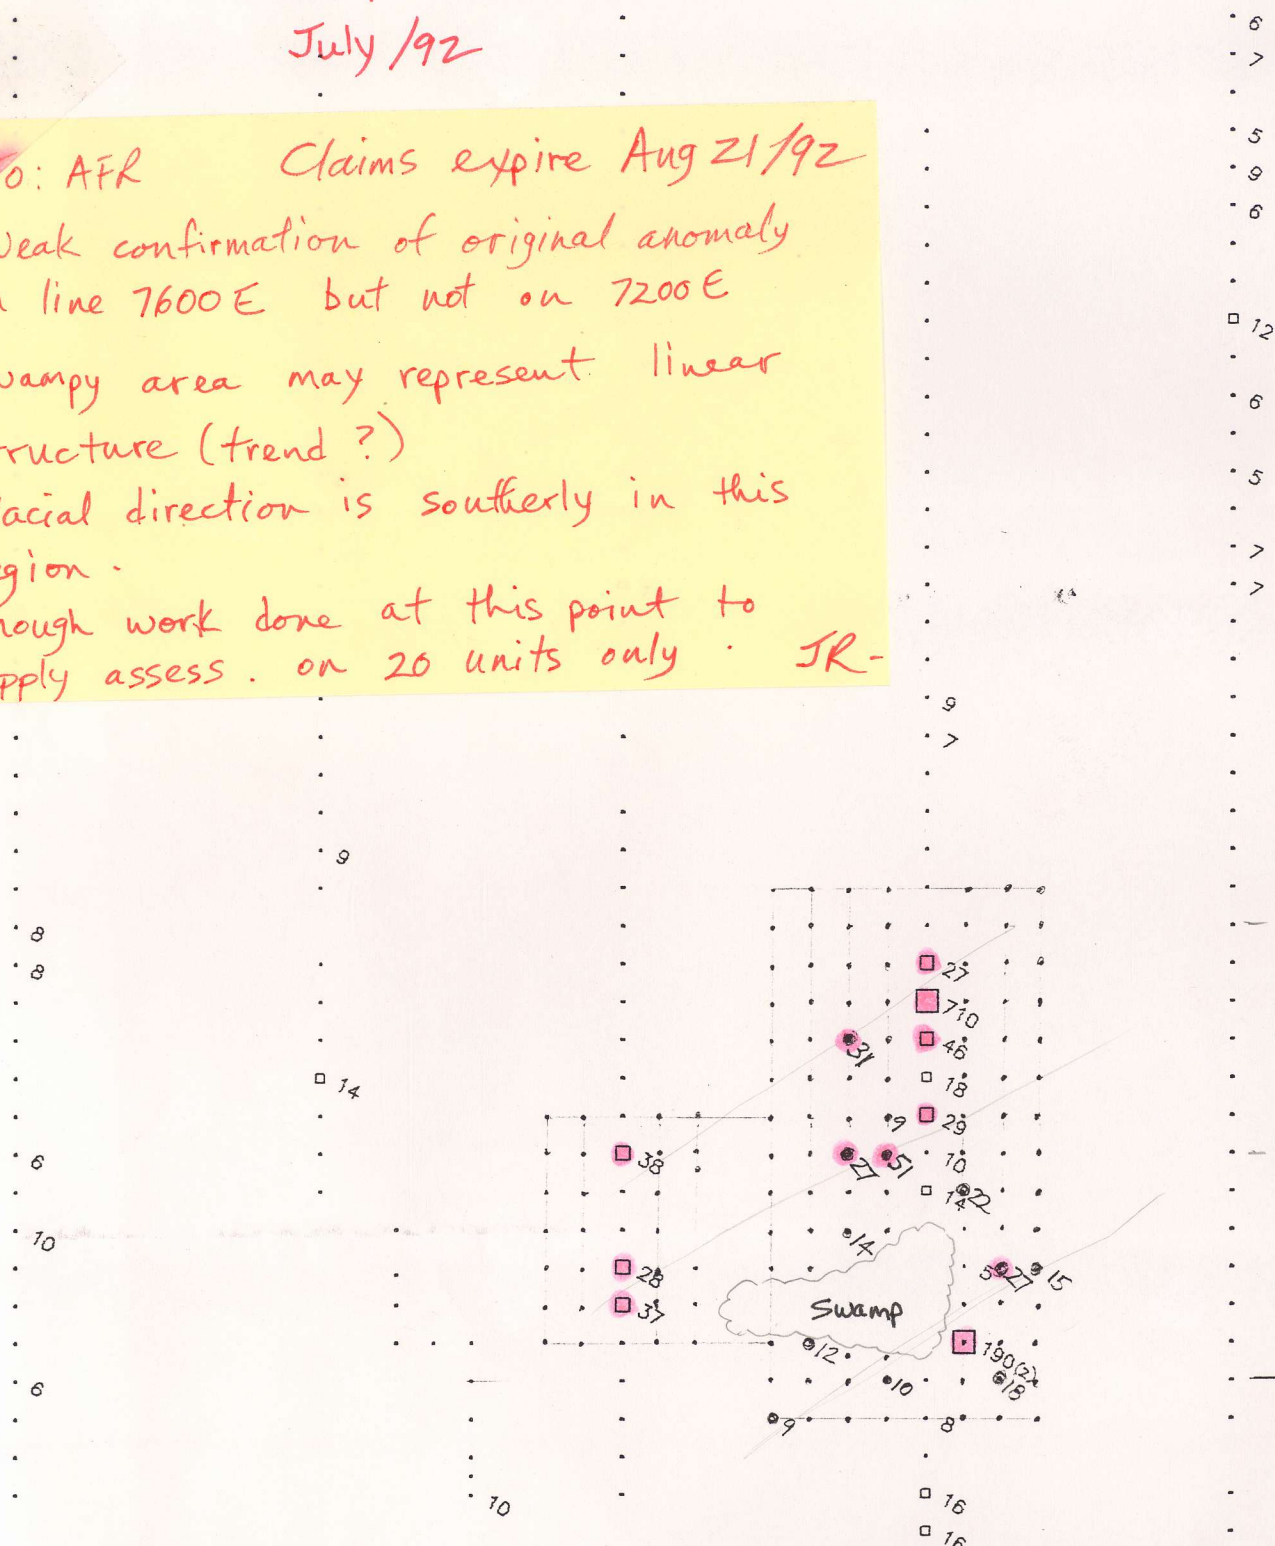 July /92
o: AFR Claims expire Aug 21/92
eak confirmation of original anomaly
line 7600 E but not on 7200 E
wampy area may represent linear
ructure (trend ?)
acial direction is southerly in this
gion.
nough work done at this point to
pply assess. on 20 units only. JR-
6
7
5
9
6
12
6
5
7
7
9
7
9
8
8
27
710
31
46
14
18
9
29
6
38
27
51
10
14
22
10
14
28
5
27
15
37
Swamp
12
190(2)
6
10
18
9
8
10
16
16